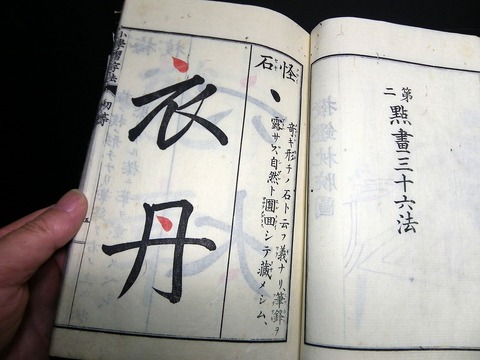 第二 點畫三十六法
怪石
奇キ形チノ石ト云フ儀ナリ、筆鋒ヲ
露サス、自然ト圍回シテ藏メシム、
衣
丹
小學習字法
初等